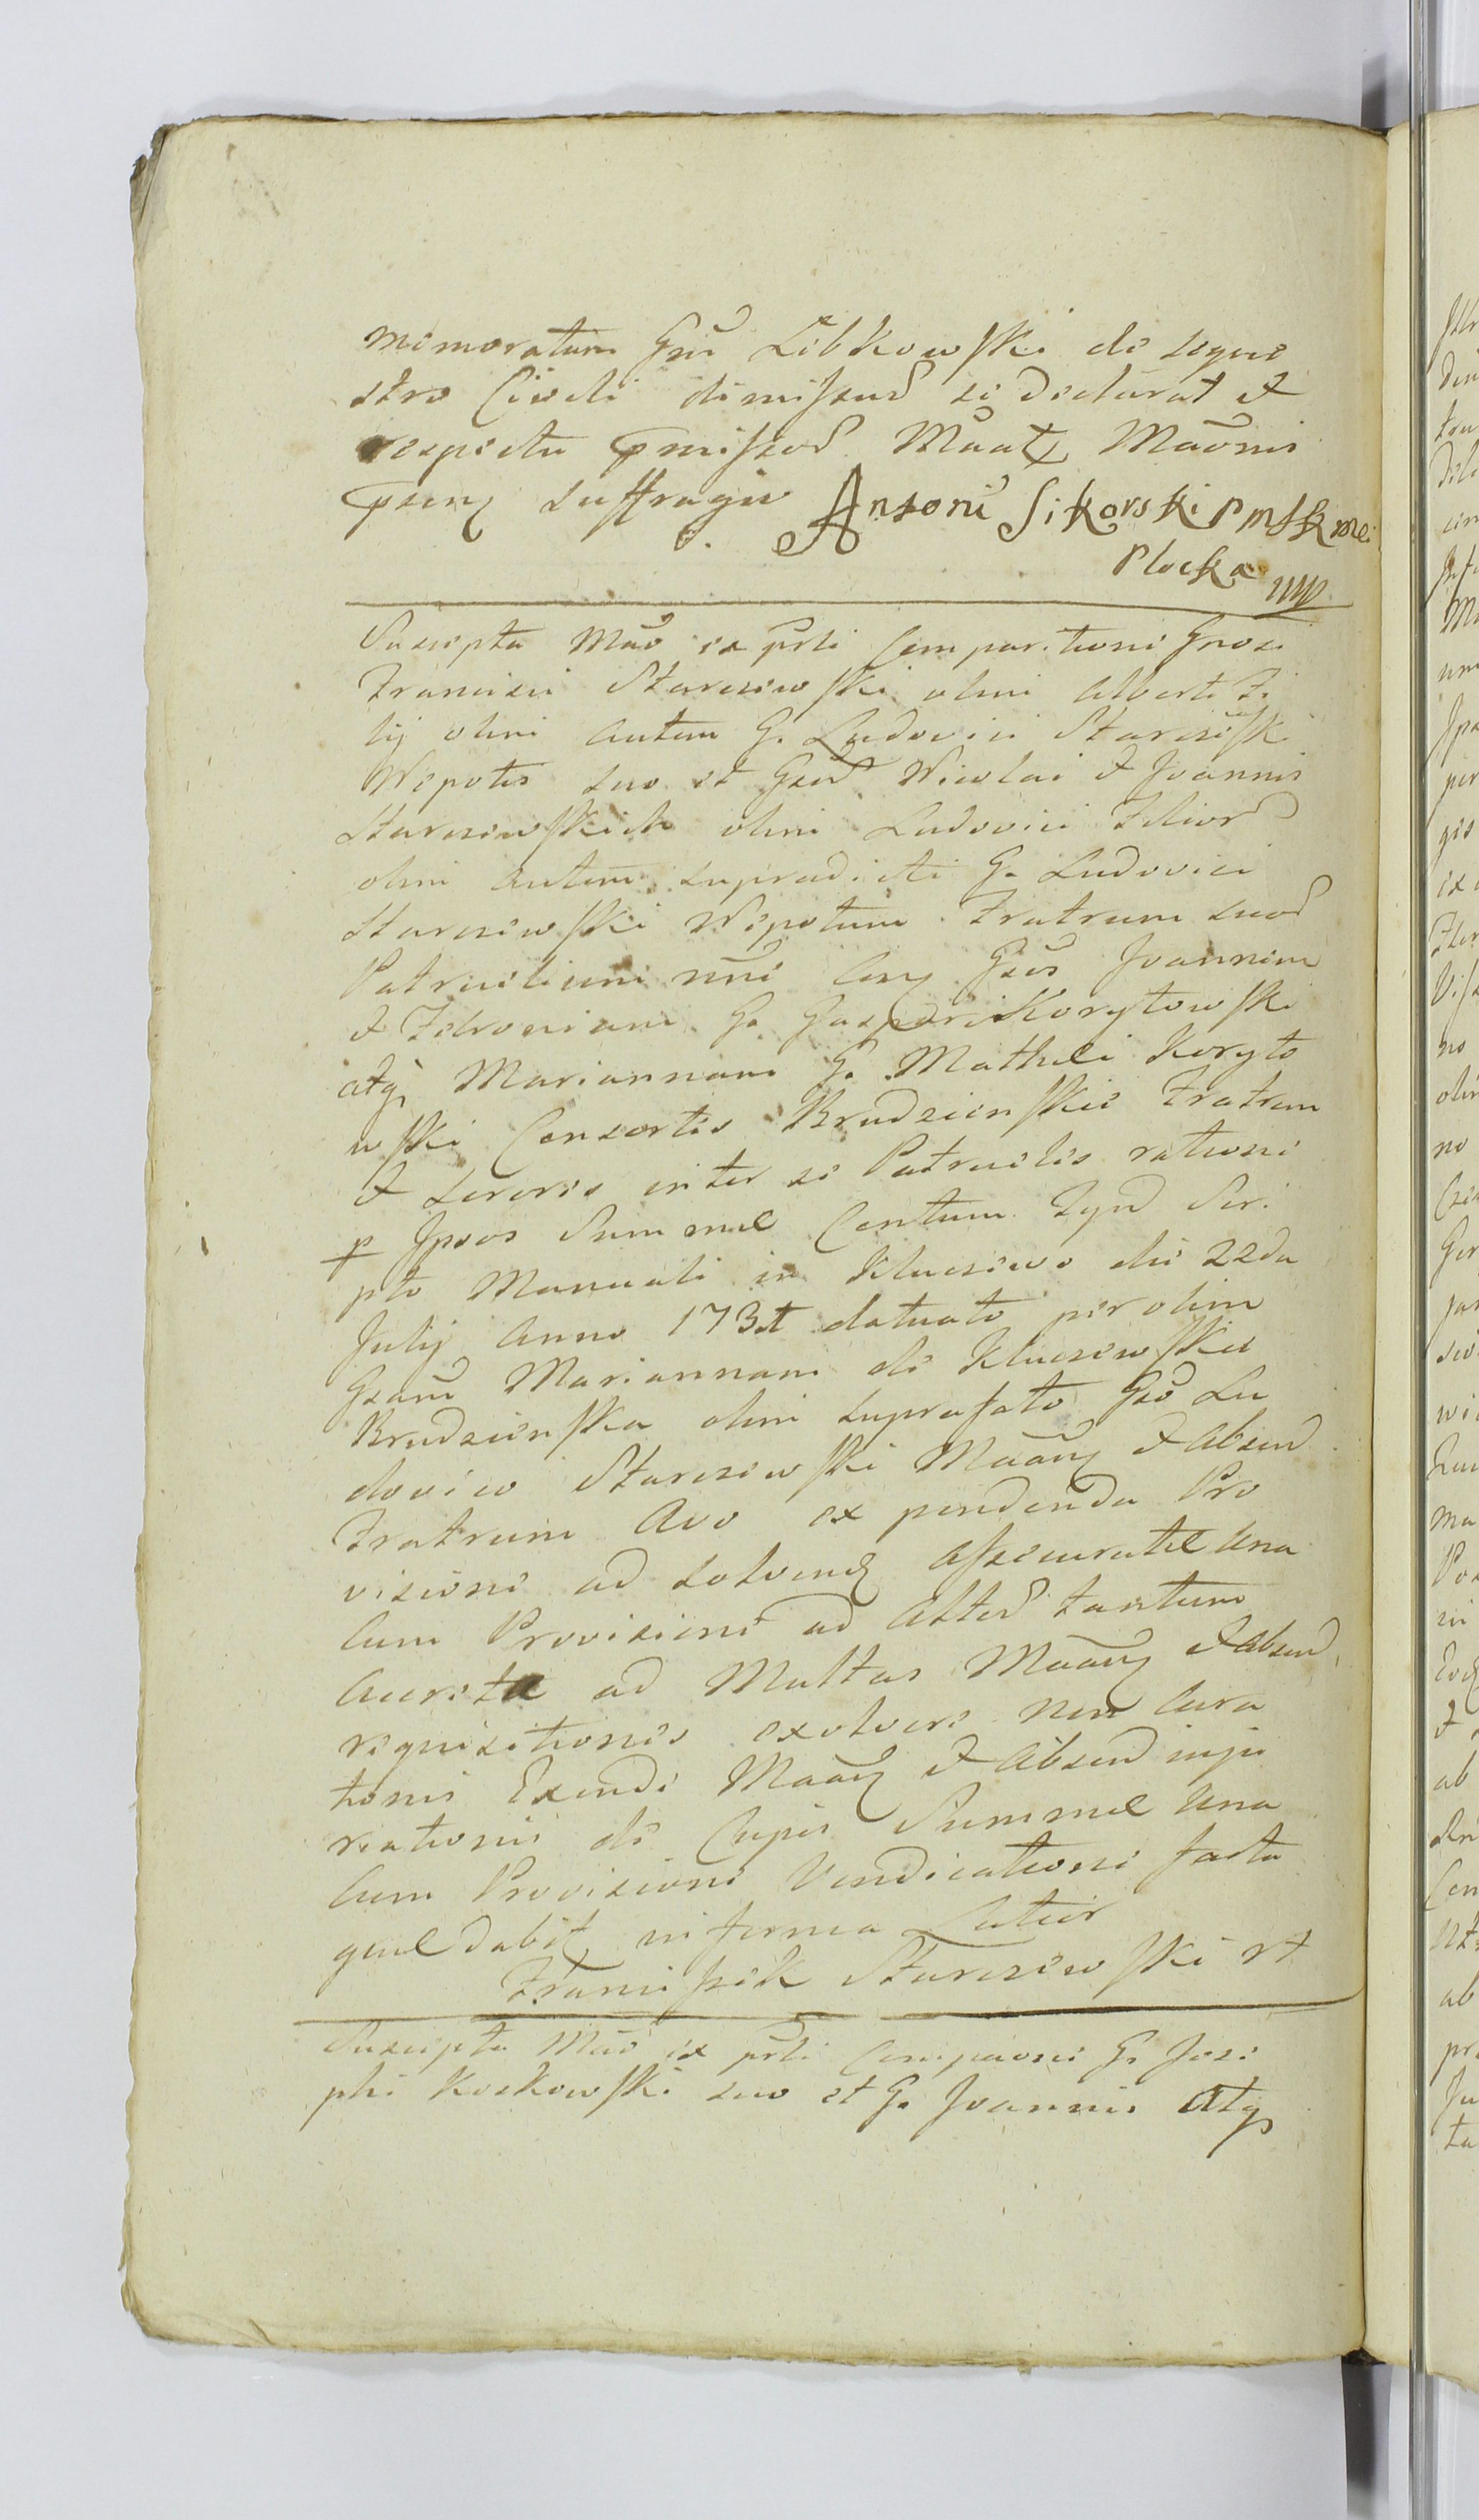 memoratum Gnū Libkowski de seque
stro Civili dimissus se declarat et
respectu pmissor Maatx Māonis
psenz suffragio Antoni Sikorski P m S k m e
Plocka mp
Suscepta Mao ex prti Comparitione Gnosi
Francisci Starczewski olim Alberti Fi
lij olim autem G. Ludovici Starczewski
Nepotis suo et Gsor Nicolai et Joannis
Starczewskich olim Ludovici Filior
olim autem supradicti G. Ludovici
Starczewski Nepotum Fratrum suor
Patruelium nni Conz Gsos Joannem
et Felicianum G. Gaspari Korytowski
atq Mariannam G. Mathei Koryto
wski Consortis Brudzienskie Fratrum
et Sororis inter se Patruelis rationi
p Ipsos Summae Centum Tynd Scri
pto Manuali in Kluczewo die 22da
Julij Anno 173 datuato per olim
Gsam Mariannam de Kluczewskie
Brudzienska olim suprafato Gso Lu
dovico Starczewski Maanz et Absend
Fratrum Avo ex pendenda Pro
visione ad solvend Assecuratae Una
Cum Provisione ad Alter tantum
Accreta ad Multas Maanz et absend
requisitiones exolvere non Cura
tionis Exendi Maanz et Absend inju
riationis de Cujus Summae Una
Cum Provisione Vendicatione facta
quae dabit in forma Latior
Franciszek Starczewski rt
Suscepta Mao ex prti Compaosi G. Jose
phi Koskowski suo et G. Joannis Atq